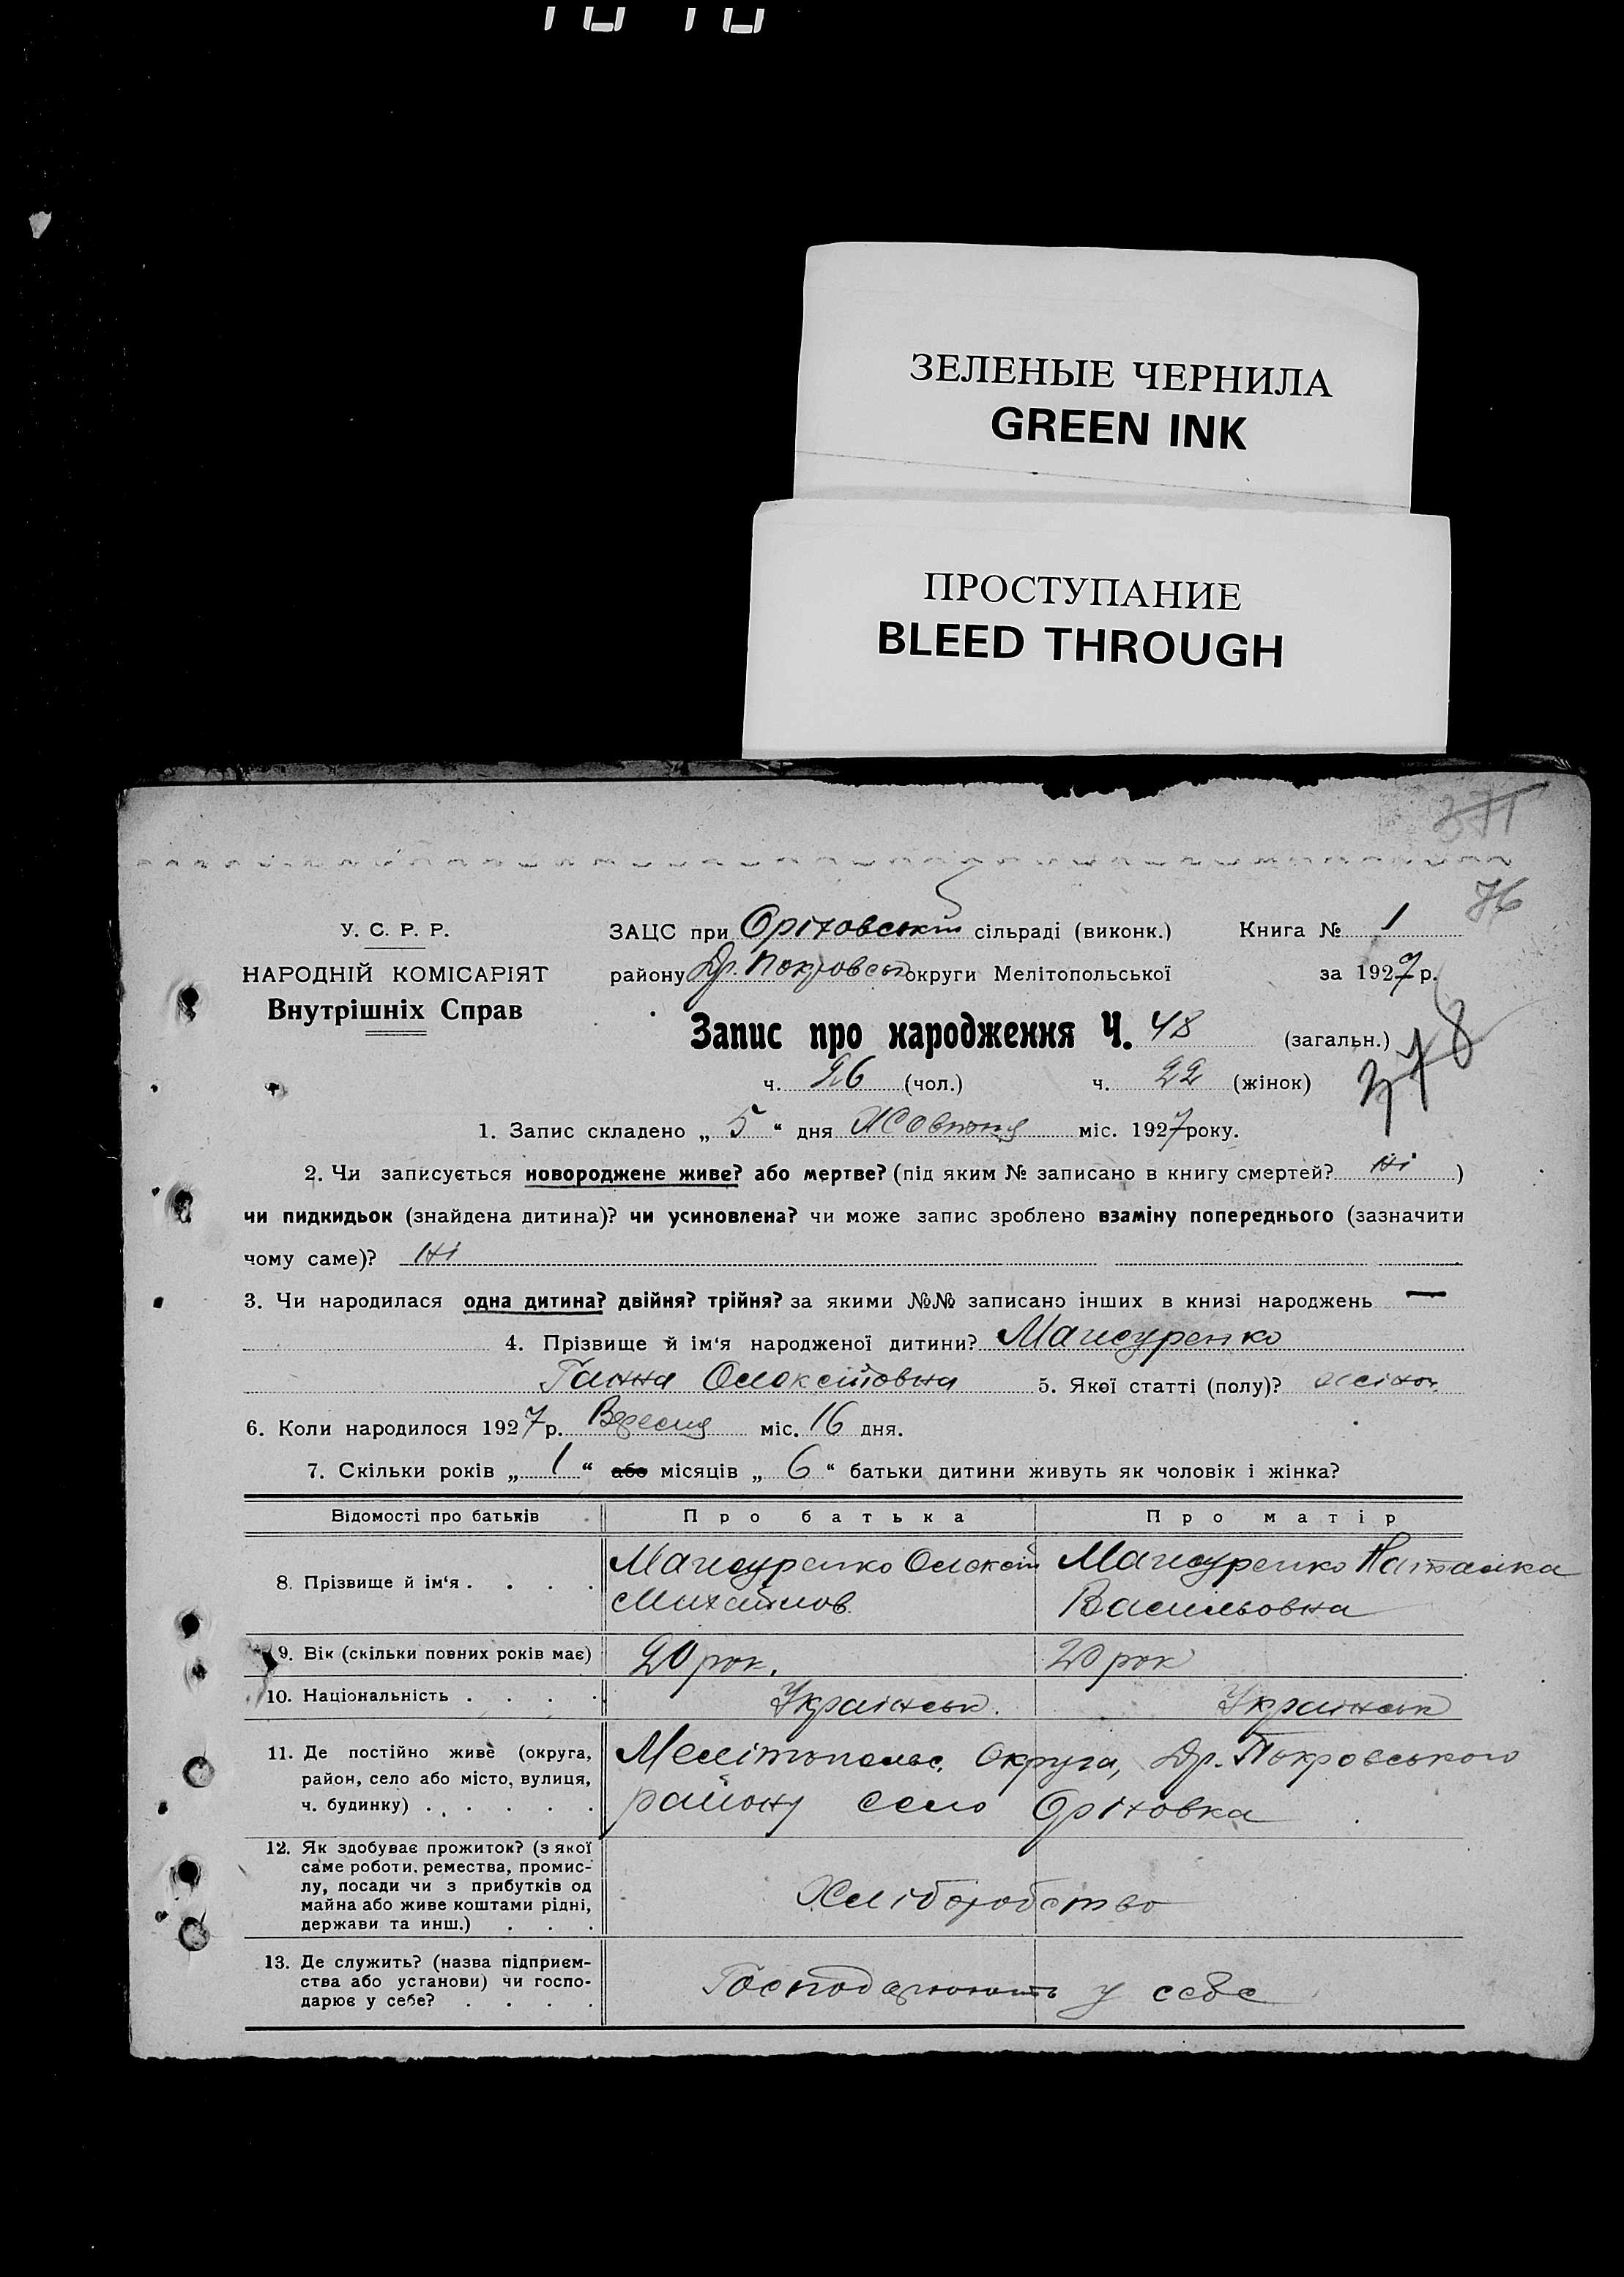 ЗЕЛЕНЫЕ ЧЕРНИЛА
GREEN INK
ПРОСТУПАНИЕ
BLEED THROUGH
371
76
У. С. Р. Р.
НАРОДНІЙ КОМІСАРІЯТ
Внутрішніх Справ
ЗАЦС при Оріховській сільраді (виконк.) Книга № 1
району Др. Покровськ округи Мелітопольської за 1927 р.
Запис про народження Ч. 48 (загальн.)
378
ч. 26 (чол.) ч. 22 (жінок)
1. Запис складено „ 5 “ дня Жовтня міс. 1927 року.
2. Чи записується новороджене живе? або мертве? (під яким № записано в книгу смертей? Ні )
чи пидкидьок (знайдена дитина)? чи усиновлена? чи може запис зроблено взаміну попереднього (зазначити
чому саме)? Ні
3. Чи народилася одна дитина? двійня? трійня? за якими №№ записано інших в книзі народжень —
4. Прізвище й ім‘я народженої дитини?
Ганна Олексіївна 5. Якої статті (полу)? жіноч.
6. Коли народилося 1927 р. Вересня міс. 16 дня.
7. Скільки років „ 1 “ або місяців „ 6 “ батьки дитини живуть як чоловік і жінка?
Відомості про батьків Про батька Про матір
8. Прізвище й ім‘я . . . . Олексій Наталка
Михайлов. Васильовна
9. Вік (скільки повних років має) 20 рок. 20 рок
10. Національність . . . . Українськ. Українськ
11. Де постійно живе (округа,
район, село або місто, вулиця,
ч. будинку) . . . . . .
Мелітопольс. Округа, Др. Покровського
району село Оріховка
12. Як здобуває прожиток? (з якої
саме роботи, ремества, промис-
лу, посади чи з прибутків од
майна або живе коштами рідні,
держави та инш.) . . .
Хліборобство
13. Де служить? (назва підприєм-
ства або установи) чи госпо-
дарює у себе? . . . .
Господарюють у себе